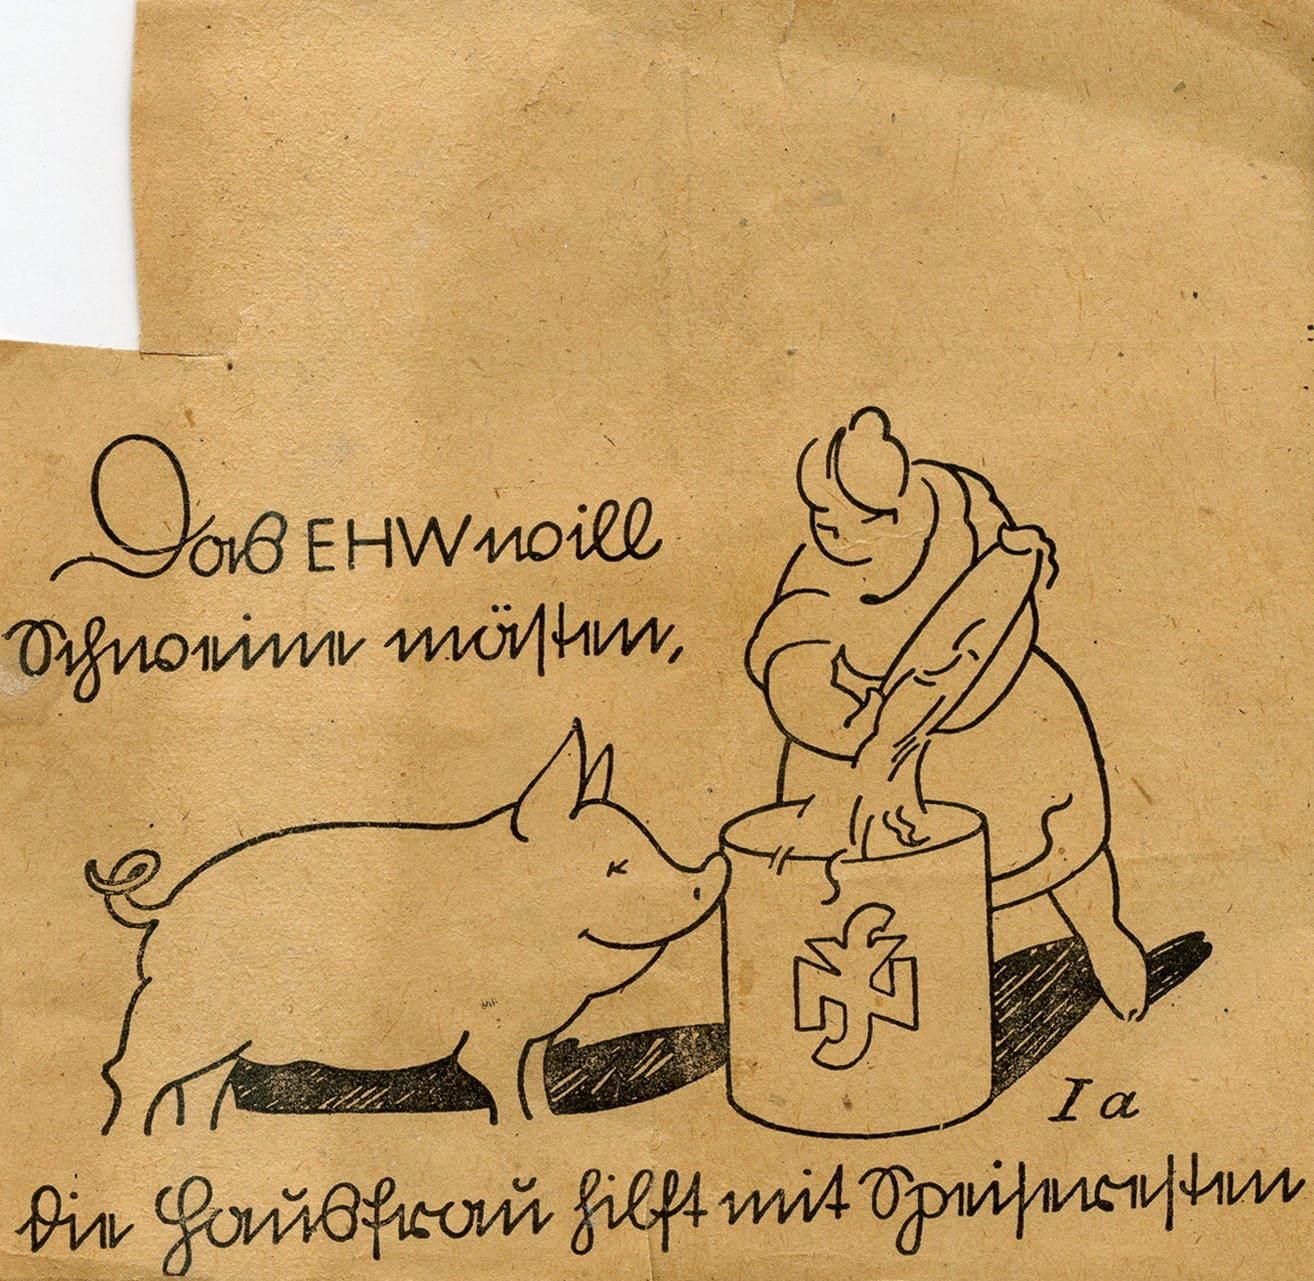 Das EHW will
Schweine mästen,
I a
die Hausfrau hilft mit Speiseresten